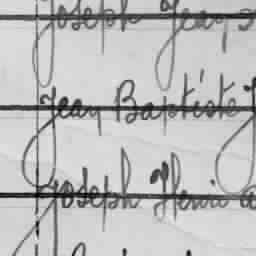 Joseph Jean
Jean Baptiste J
Joseph Henri